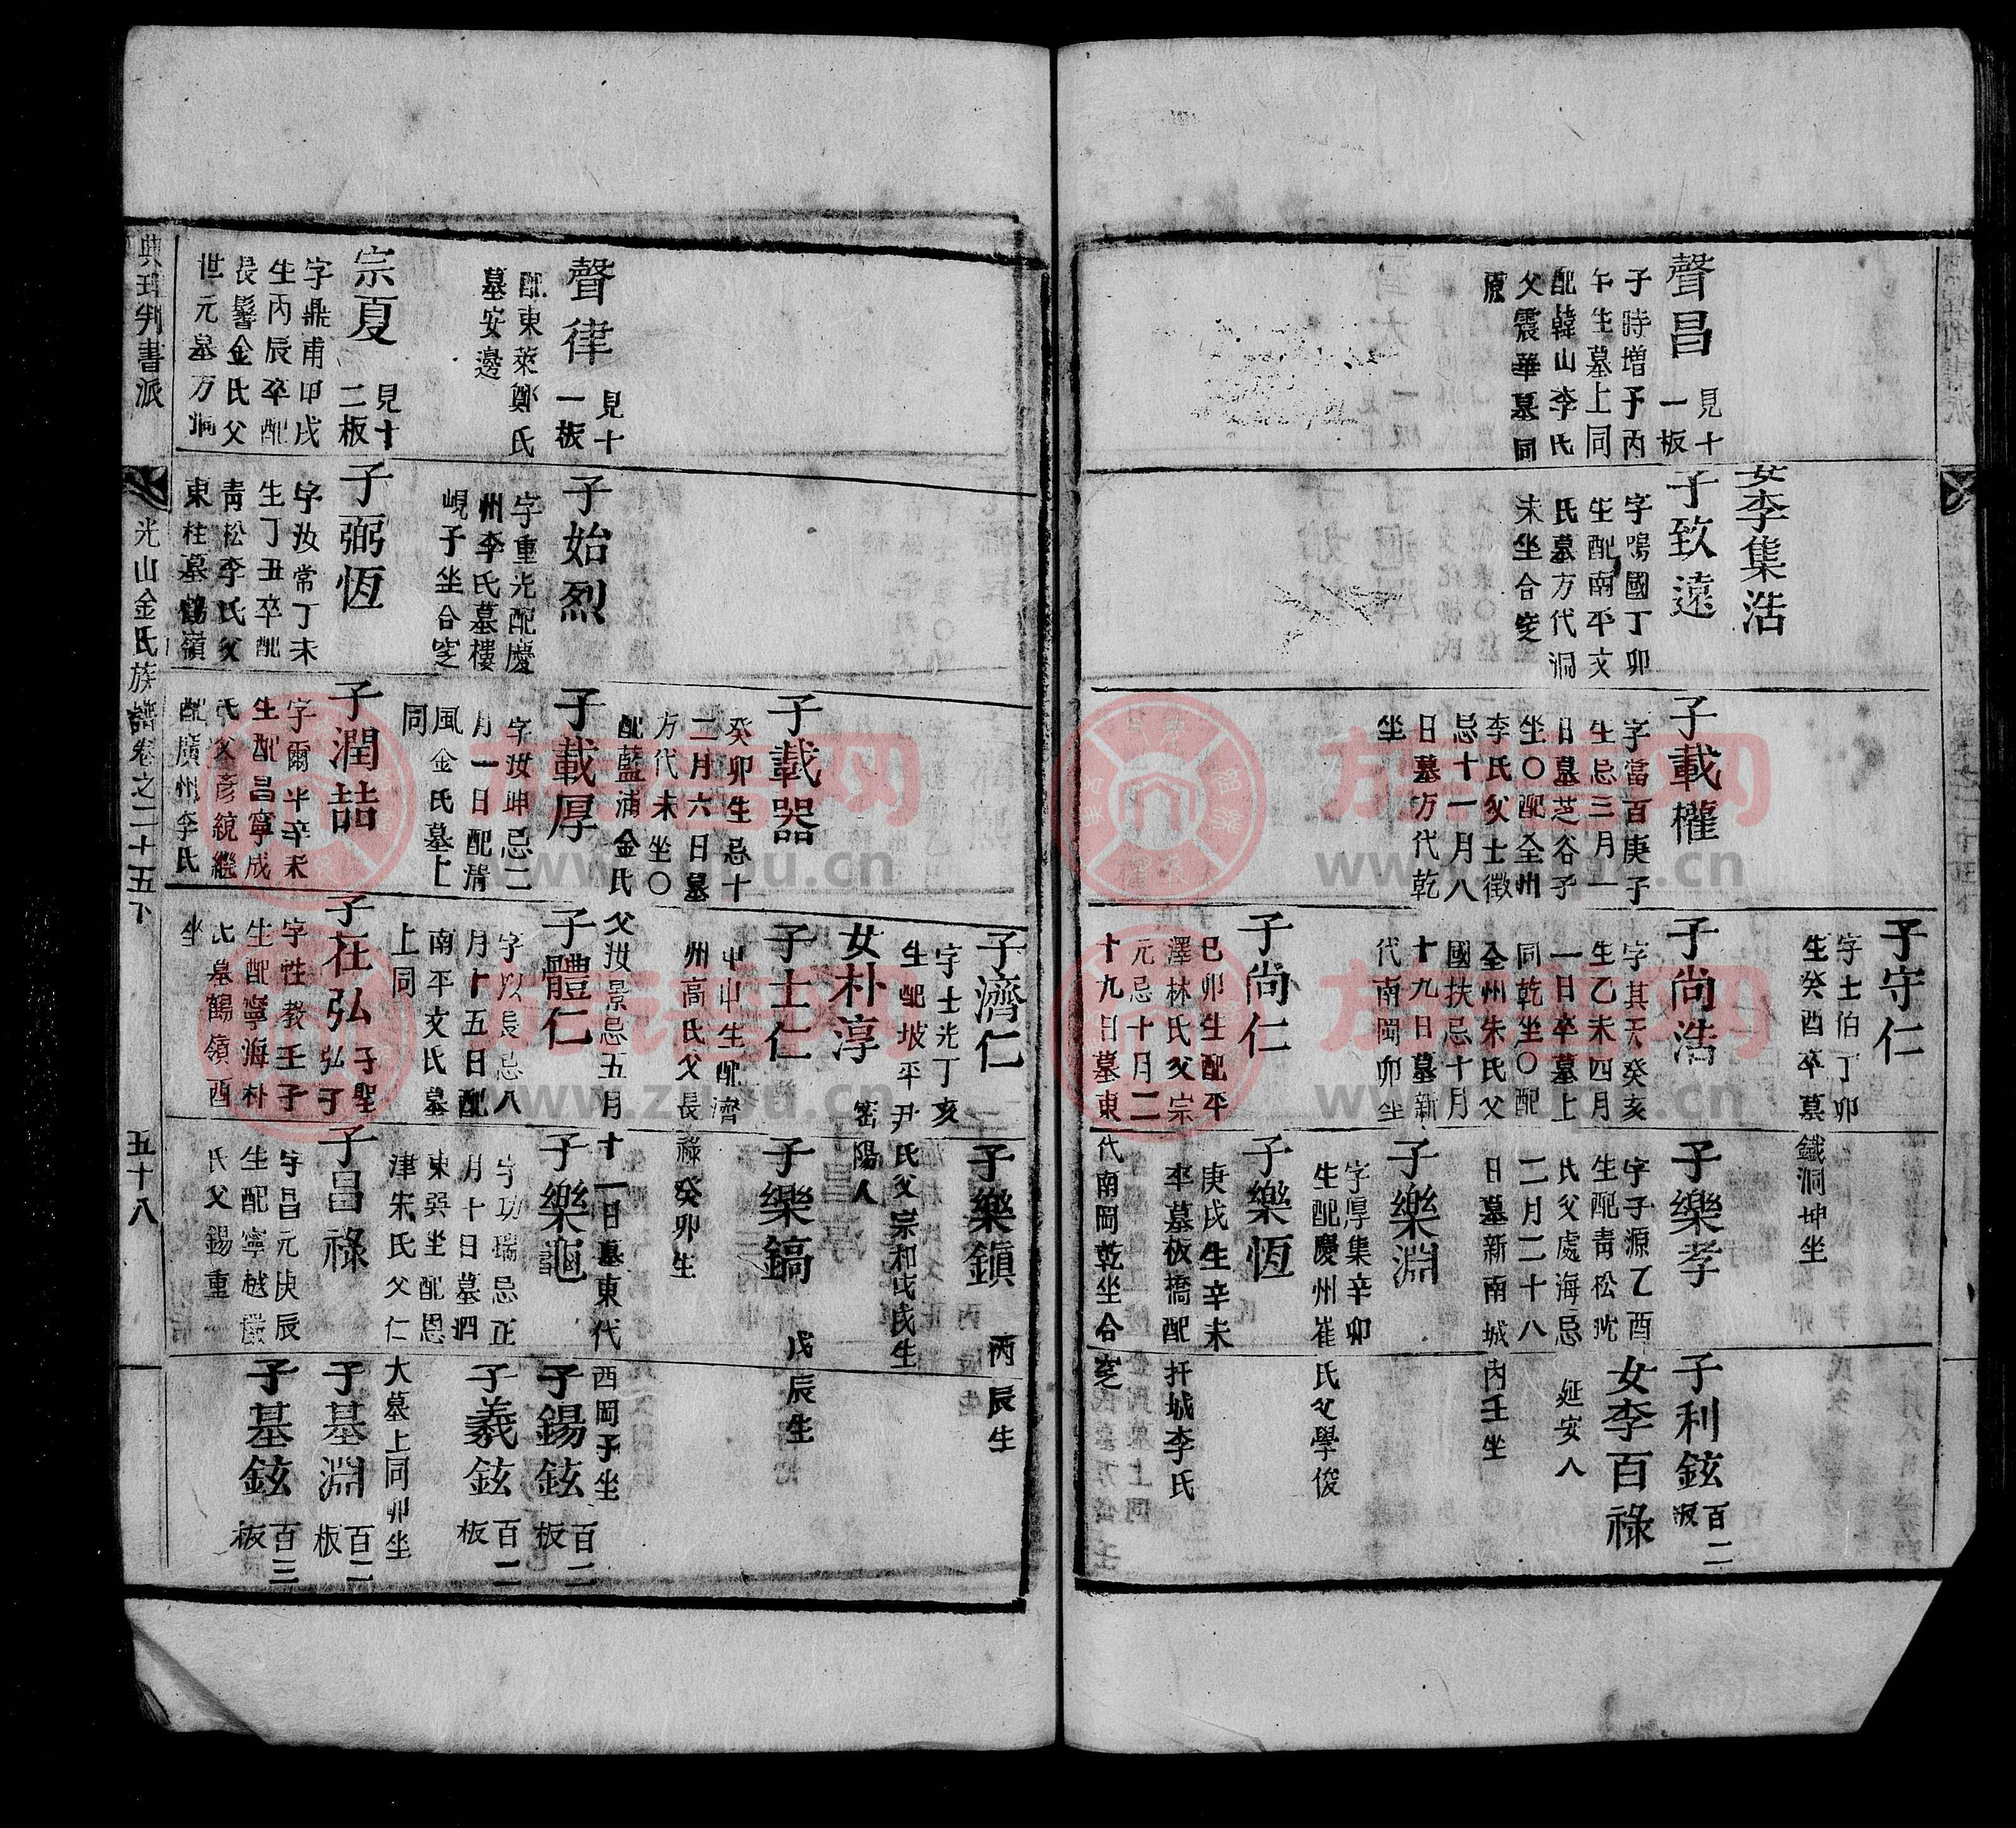 聲昌
見十
一板
子時增子丙
午生墓上同
配韓山李氏
父震華墓同
原
女李集浩
子致遠
字鳴國丁卯
生配南平文
氏墓方代洞
未坐合窆
子載權
字當百庚子
生忌三月一
日墓芝谷子
坐〇配全州
李氏父士徵
忌十一月八
日墓方代乾
坐
子守仁
字士伯丁卯
生癸酉卒墓
鐵洞坤坐
子尚浩
字其天癸亥
生乙未四月
一日卒墓上
同乾坐〇配
全州朱氏父
國扶忌十月
十九日墓新
代南岡卯坐
子尚仁
己卯生配平
澤林氏父宗
元忌十月二
十九日墓東
代南岡乾坐合窆
子樂孝
字子源乙酉
生配青松沈
氏父處海忌
二月二十八
日墓新南城
內壬坐
子樂淵
字厚集辛卯
生配慶州崔
氏父學俊
子樂恆
庚戌生辛未
卒墓板橋配
扞城李氏
子利鉉
百二
板
女李百祿
延安人
聲律
見十
一板
配東萊鄭氏
墓安邊
宗夏
見十
二板
字鼎甫甲戌
生丙辰卒配
長鬐金氏父
世元墓方洞
子始烈
字重光配慶
州李氏墓樓
峴子坐合窆
子弼恆
字汝常丁未
生丁丑卒配
青松李氏父
東柱墓鶴嶺
子載器
癸卯生忌十
二月六日墓
方代未坐〇
配藍浦金氏
父汝景忌五月
十一日墓東代
西岡子坐
子載厚
字汝坤忌二
月一日配清
風金氏墓上
同
子潤喆
字爾半辛未
生配昌寧成
氏父彥統繼
配廣州李氏
子濟仁
字士光丁亥
生配坡平尹
氏父宗和戊戌生
女朴淳
密陽人
子士仁
甲申生配濟
州高氏父長
祿癸卯生
子體仁
字以長忌八
月十五日配
南平文氏墓
上同
子在弘
子聖
弘丁
字性教壬子
生配寧海朴
氏墓鶴嶺酉
坐
子樂鎮
丙辰生
子樂鎬
戊辰生
子樂龜
字功瑞忌正
月十日墓泗
東巽坐配恩
津朱氏父仁
大墓上同卯坐
子昌祿
字昌元庚辰
生配寧越嚴
氏父錫重
子錫鉉
百二
板
子羲鉉
百二
板
子基淵
百二
板
子基鉉
百三
板
典理判書派
光山金氏族譜卷之二十五下
五十八
族谱网
www.zupu.cn